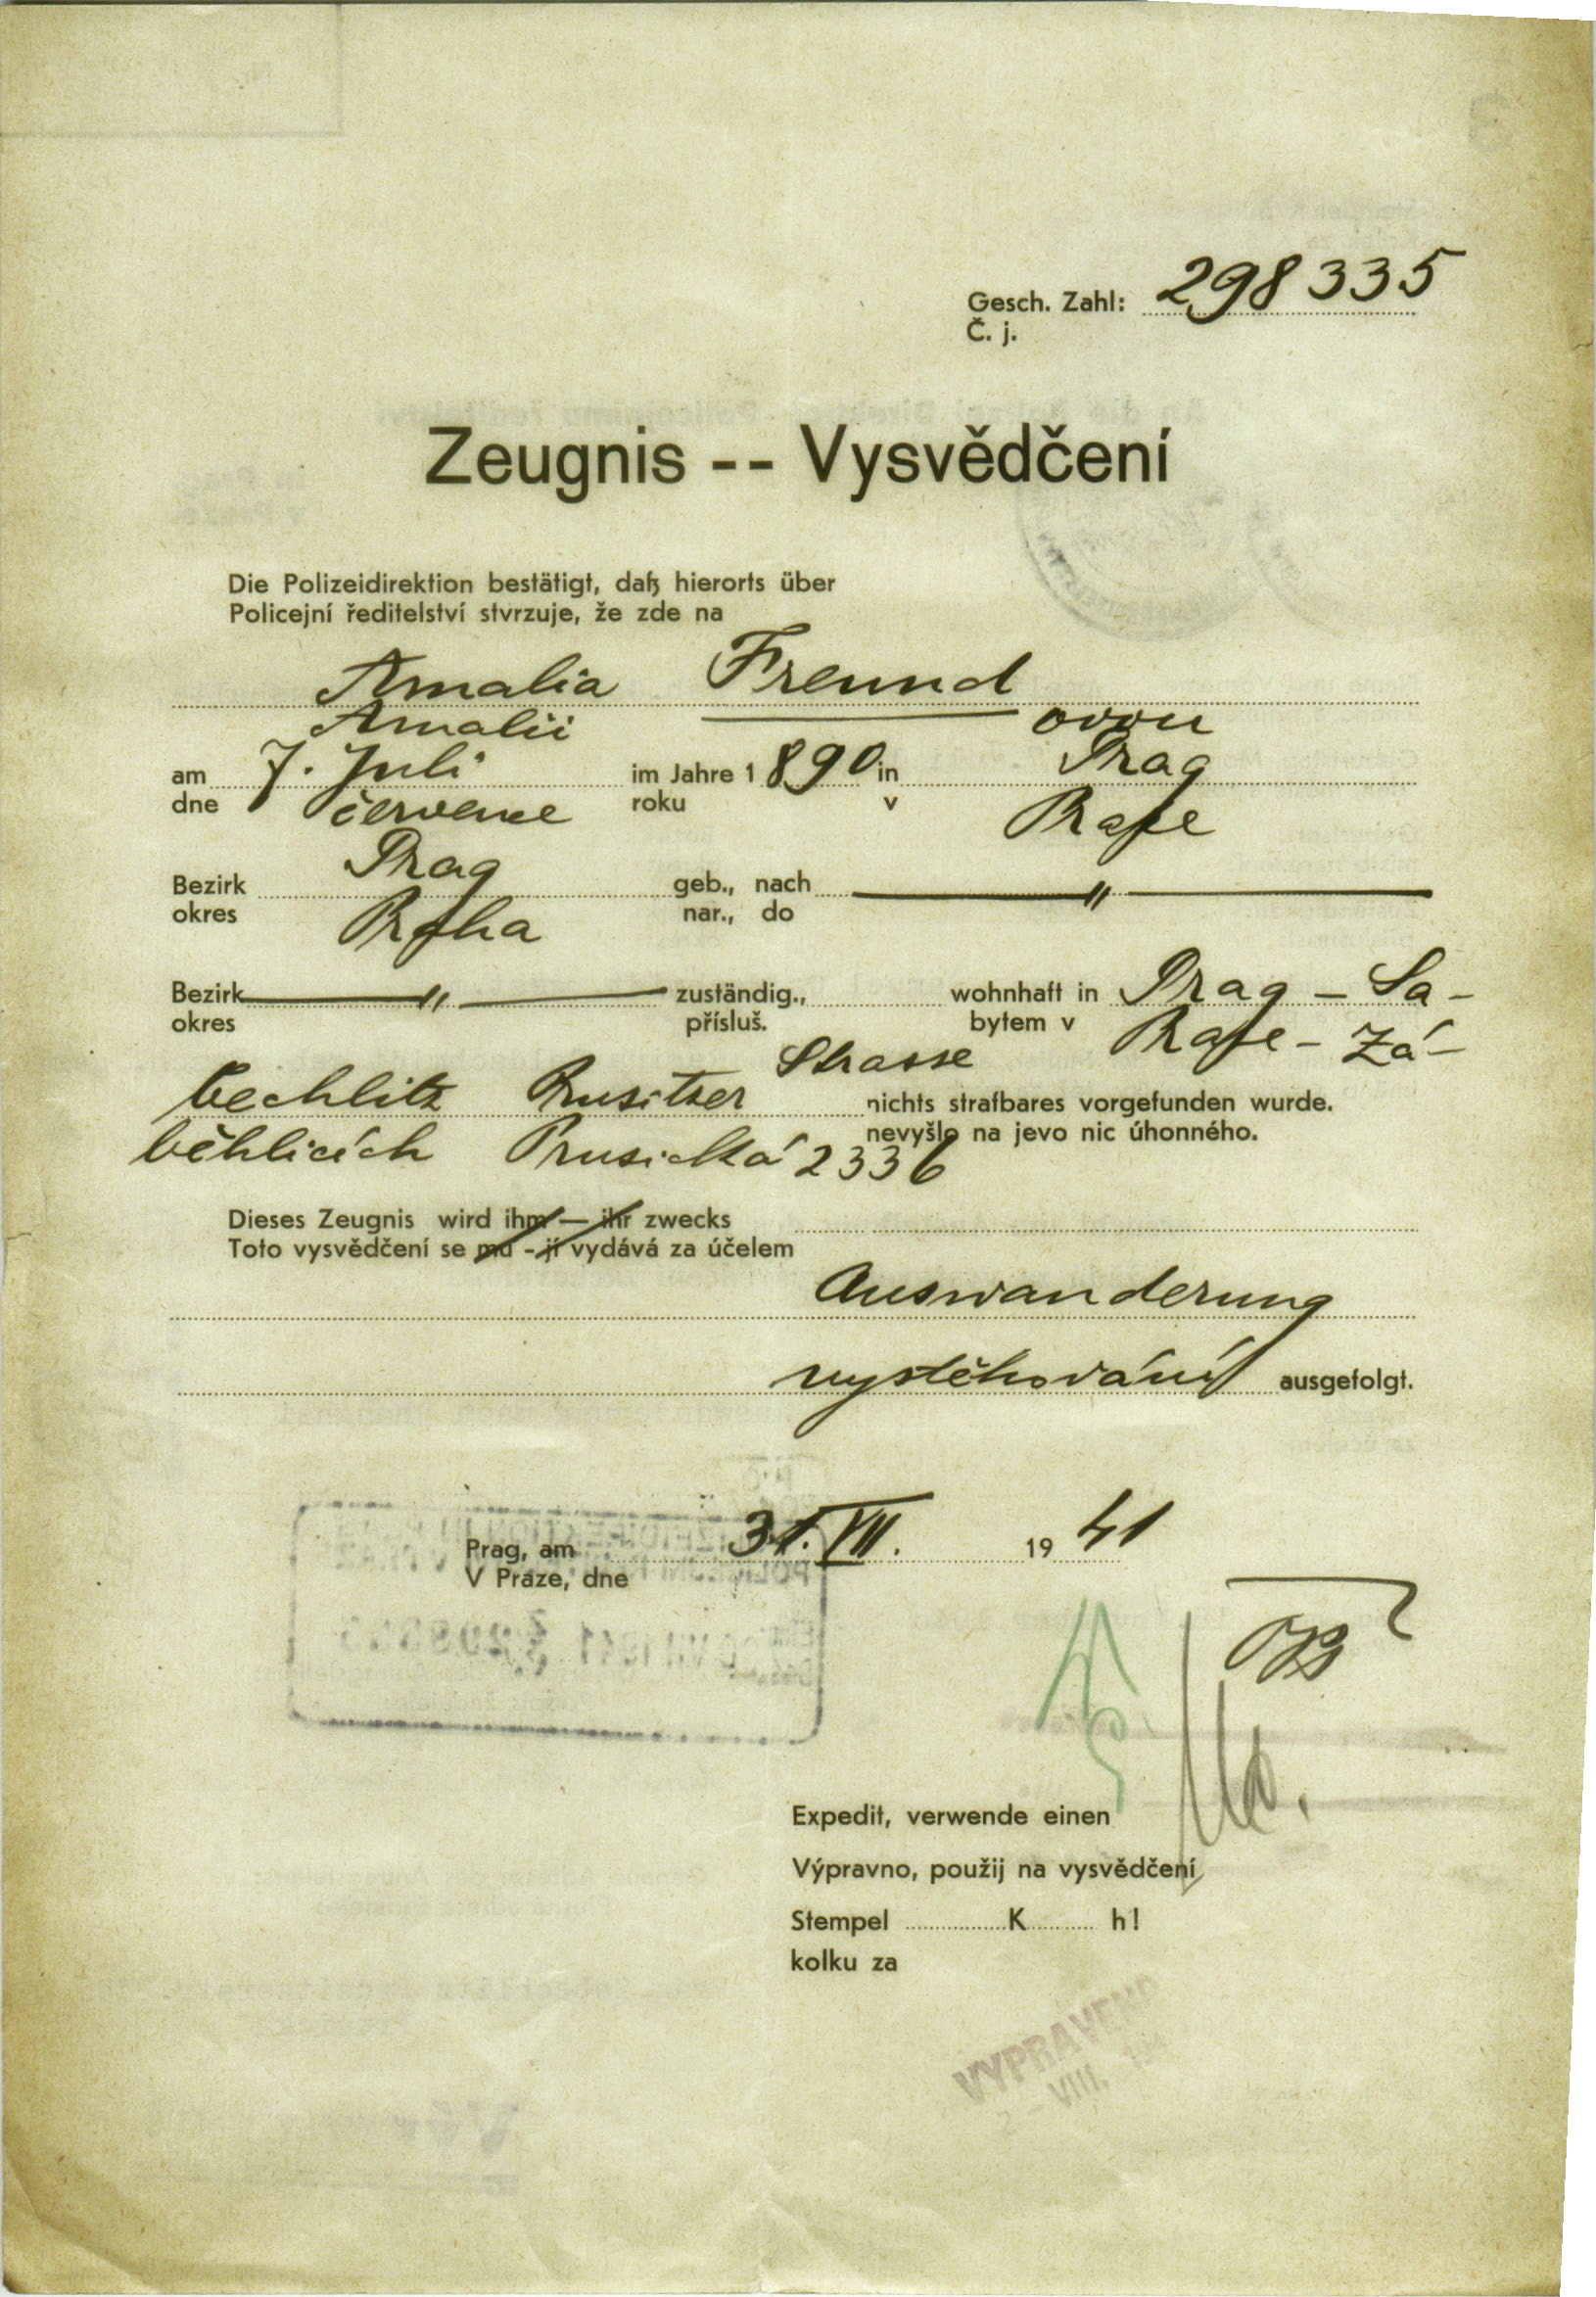 Gesch. Zahl: 298335
Č. j.
Zeugnis -- Vysvědčení
Die Polizeidirektion bestätigt, daß hierorts über
Policejní ředitelství stvrzuje, že zde na
Amalia Freund
Amalii ovou
am 7. Juli im Jahre 1890 in Prag
dne července roku v Praze
Bezirk Prag geb., nach "
okres Praha nar., do
Bezirk " zuständig., wohnhaft in Prag - Sa-
okres přísluš. bytem v Praze - Zá-
Strasse
bechlitz Rusitzer nichts strafbares vorgefunden wurde.
nevyšlo na jevo nic úhonného.
běhlicích Prusická 2336
Dieses Zeugnis wird ihm — ihr zwecks
Toto vysvědčení se mu - jí vydává za účelem
Auswanderung
vystěhování ausgefolgt.
Prag, am 31. VII. 1941
V Praze, dne
Expedit, verwende einen
Výpravno, použij na vysvědčení
Stempel K h!
kolku za
VYPRAVENO
VIII.